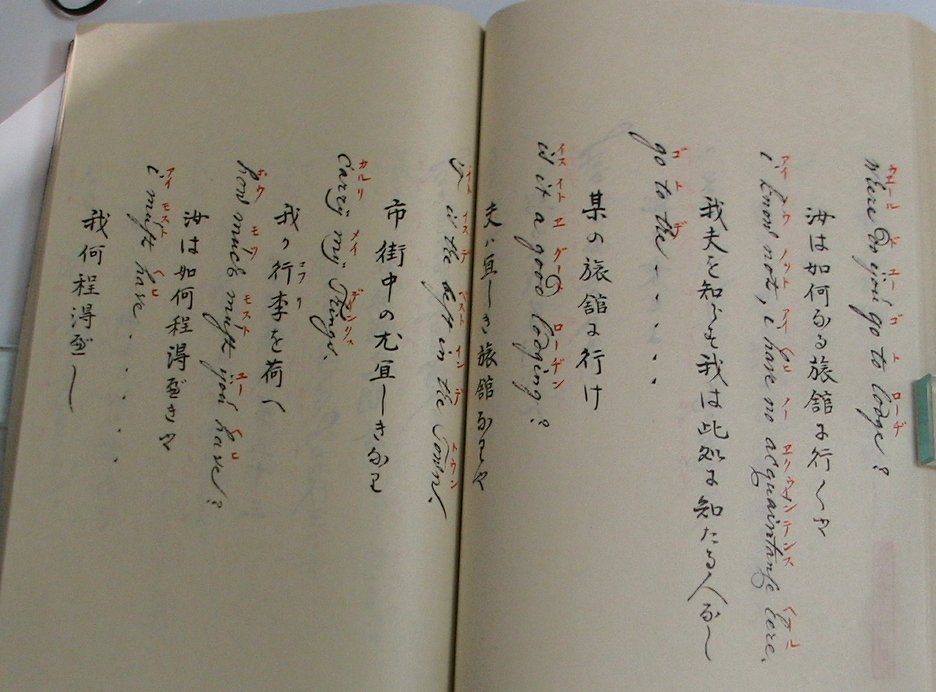 ウエール ドー ユー ゴ ト ローヂ
where do you go to lodge?
汝は如何なる旅舘に行くや
アイ ノウ ノット アイ ヘヒ ノー エクウヱンテンス ヘール
i know not, i have no acquaintanſe here.
我夫を知らず我は此処に知たる人なし
ゴ ト デ
go to the . . . . .
某の旅舘に行け
イス イト エ グード ローヂン
is it a good lodging?
夫ハ宜しき旅舘なりや
イト イス デ ベスト イン デ トウン
it is the beſt in the Town.
市街中の尤宜しきなり
カルリ メイ ヂンリス
Carry my Things.
我カ行李を荷へ
ヂウ モヅ モスト ユー ヘヒ
how much muſt you have?
汝は如何程得べきや
アイ モスト ヘヒ
i muſt have . . . .
我何程得べし